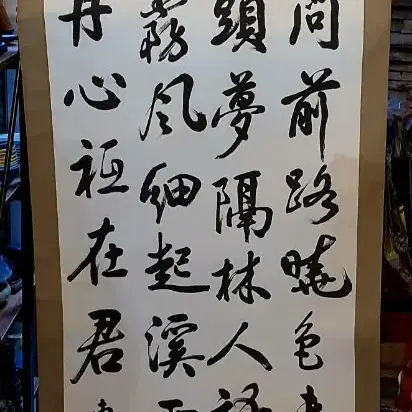 問前路曉色
頭夢隔林人語
霧風細起溪
丹心祗在君